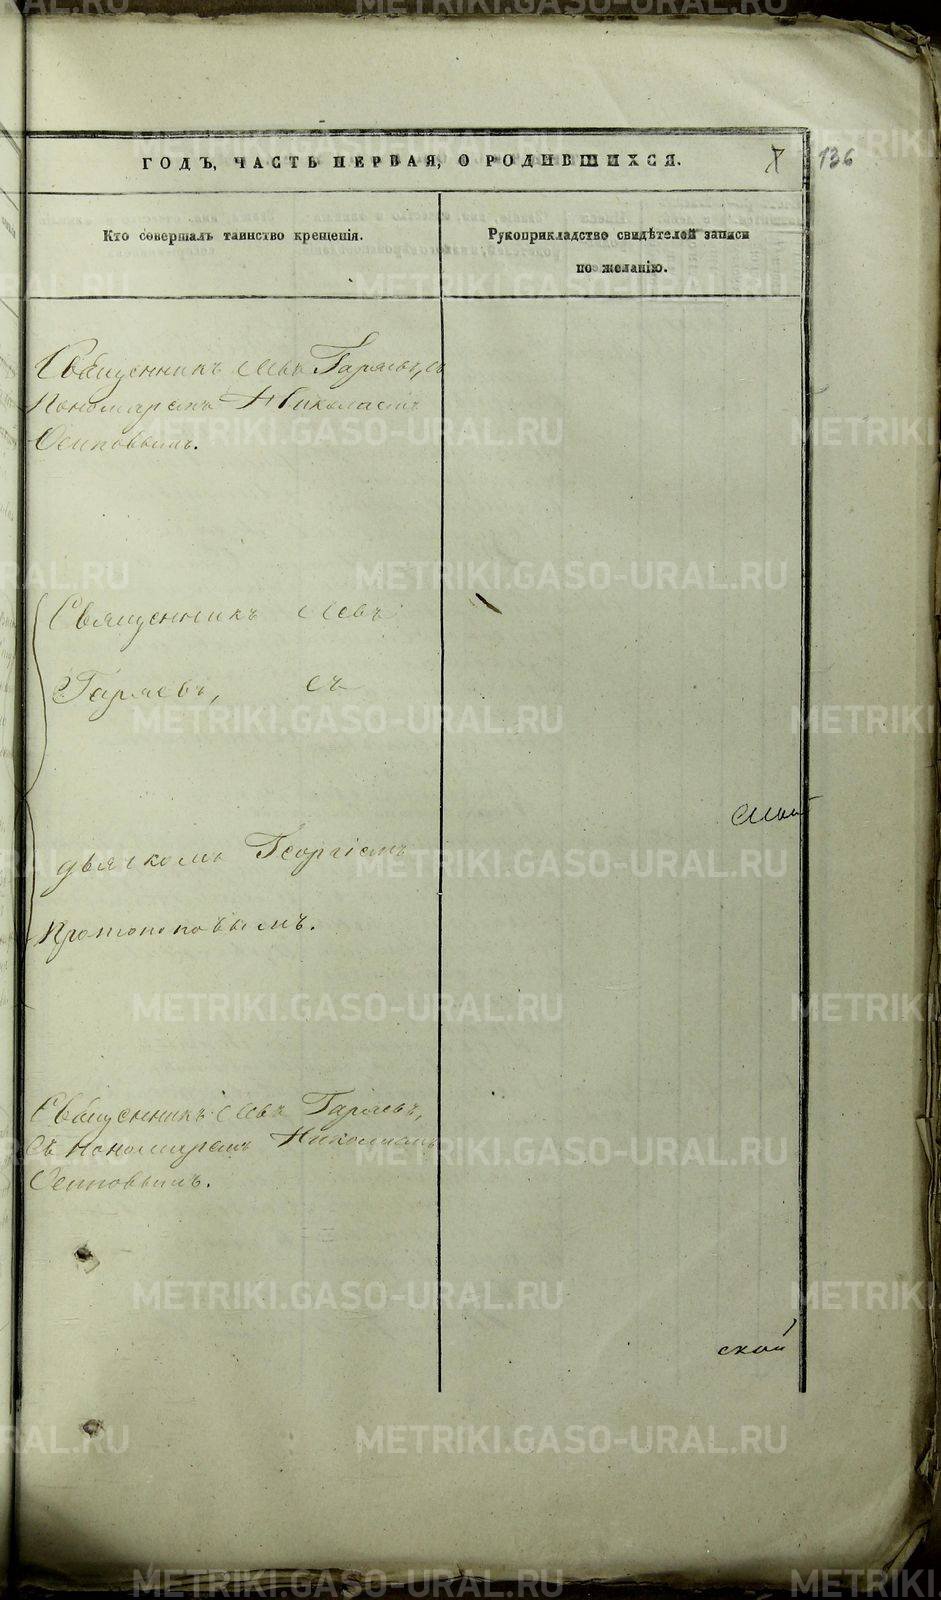 ГОДЪ, ЧАСТЬ ПЕРВАЯ, О РОДИВШИХСЯ.
136
Кто совершалъ таинство крещенія.
Рукоприкладство свидѣтелей записи
по желанію.
Священникъ Левъ Гаряевъ, съ
Пономаремъ Николаемъ
Осиповымъ.
Священникъ Левъ
Гаряевъ, съ
дьячкомъ Георгіемъ
Протопоповымъ.
Священникъ Левъ Гаряевъ,
съ пономаремъ Николаемъ
Осиповымъ.
ской
METRIKI.GASO-URAL.RU